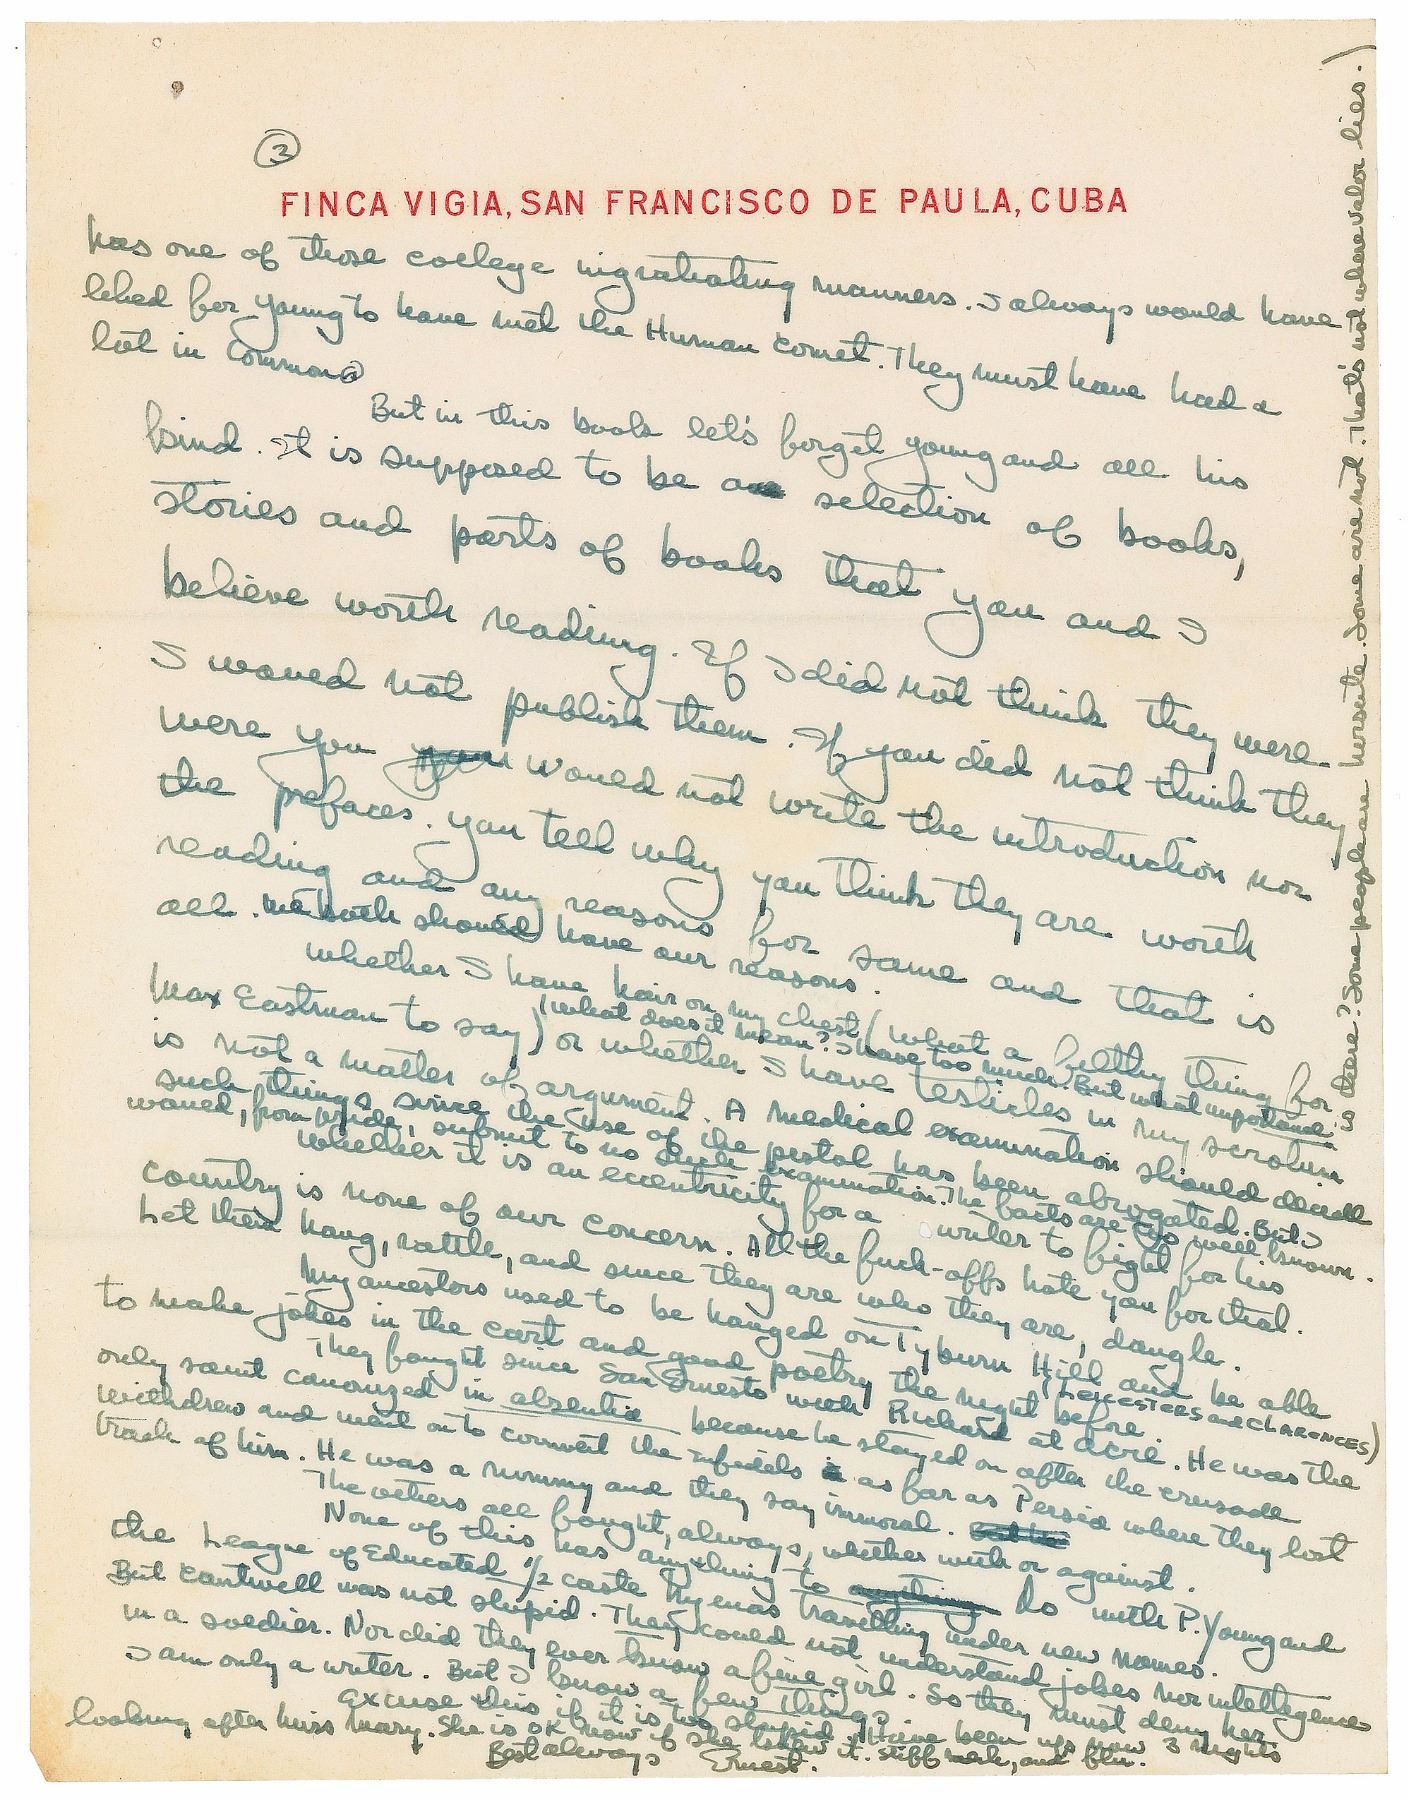 3
FINCA VIGIA, SAN FRANCISCO DE PAULA, CUBA
has one of those college ingratiating manners. I always would have
liked for Young to have met the Human Comet. They must have had a
lot in common.
But in this book let's forget Young and all his
kind. It is supposed to be a selection of books,
stories and parts of books that you and I
believe worth reading. If I did not think they were
I would not publish them. If you did not think they
were you would not write the introduction nor
the prefaces. You tell why you think they are worth
reading and any reasons for same and that is
all. We both should have our reasons.
Whether I have hair on my chest (what a filthy thing for
Max Eastman to say) (What does it mean? I have too much. But what importance
is there? Some people are hirsute. Some are not. That's not where valor lies.)
or whether I have testicles in my scrotum
is not a matter of argument. A medical examination should decide
such things since the use of the pistol has been abrogated. But I
would, from pride, submit to no such examination. The facts are too well known.
Whether it is an eccentricity for a writer to fight for his
country is none of our concern. All the fuck-offs hate you for that.
Let them hang, rattle, and since they are who they are, dangle.
My ancestors used to be hanged on Tyburn Hill and be able
to make jokes in the cart and good poetry the night before.
(LEICESTERS and CLARENCES)
They fought since San Ernesto with Richard at Acre. He was the
only saint canonized in absentia because he stayed on after the crusade
withdrew and went on to convert the infidels as far as Persia where they lost
track of him. He was a rummy and they say immoral.
The others all fought, always, whether with or against.
None of this has anything to do with P. Young and
the League of Educated 1/2 caste Hyenas travelling under new names.
But Cantwell was not stupid. They could not understand jokes nor intelligence
in a soldier. Nor did they ever know a fine girl. So they must deny her.
I am only a writer. But I know a few things.
Excuse this if it is too stupid. Have been up now 3 nights
looking after Miss Mary. She is OK now if she knew it. Stiff neck, and flu.
Best always
Ernest.